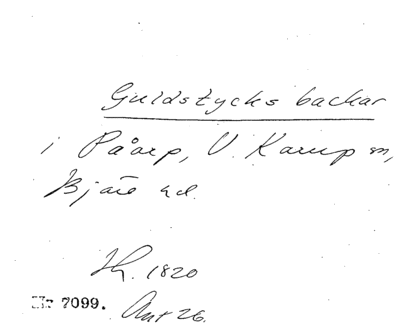 Guldstycks backar
i Påarp, V. Karup sn,
Bjäre hd.
Hh. 1820
Nr 7099. Ant 26.